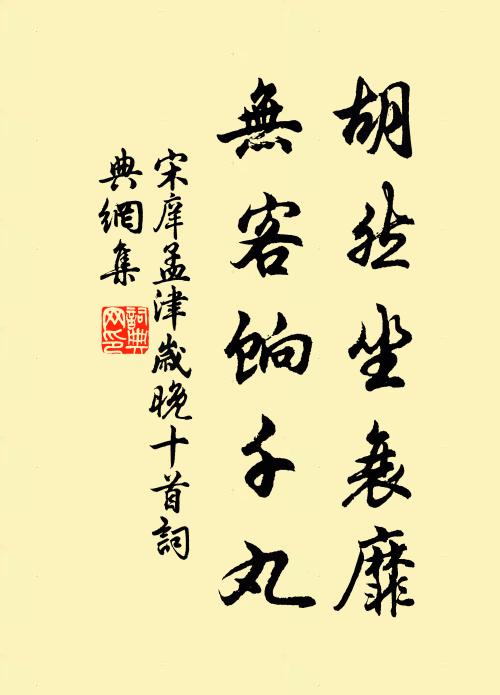 胡然坐衰靡
無客餉千丸
宋庠孟津歲晚十首詞
典網集
詞典
网印